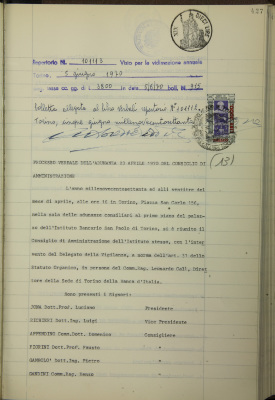 127
Repertorio N. 101113 Visto per la vidimazione annuale
Torino, 5 giugno 1970
Torino, cinque giugno millenovecentosettanta
(13)
PROCESSO VERBALE DELL'ADUNANZA 22 APRILE 1970 DEL CONSIGLIO DI
AMMINISTRAZIONE
L'anno millenovecentosettanta ed alli ventidue del
mese di aprile, alle ore 16 in Torino, Piazza San Carlo 156,
nella sala delle adunanze consiliari al primo piano del palaz-
zo dell'Istituto Bancario San Paolo di Torino, si è riunito il
Consiglio di Amministrazione dell'Istituto stesso, con l'inter-
vento del Delegato della Vigilanza, a norma dell'art. 33 dello
Statuto Organico, in persona del Comm.Rag. Leonardo Coli, Diret
tore della Sede di Torino della Banca d'Italia.
Sono presenti i Signori:
JONA Dott.Prof. Luciano Presidente
Dott.Ing. Luigi Vice Presidente
APPENDINI Comm.Dott. Domenico Consigliere
FIORINI Dott.Prof. Fausto "
Dott.Ing. Pietro "
Comm.Rag. Renzo "